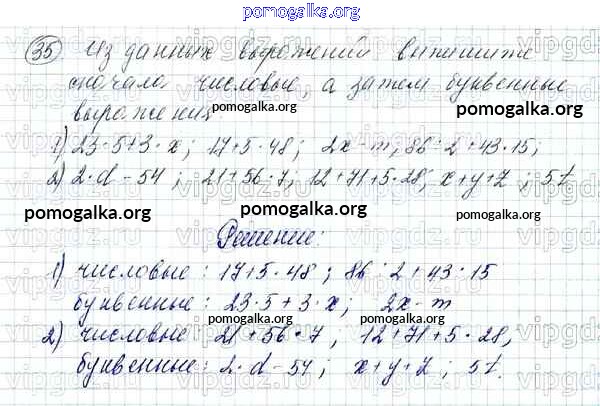 pomogalka.org
35 Из данных выражений выпишите
сначала числовые, а затем буквенные
выражения
pomogalka.org pomogalka.org
1) 23·5+3·x; 17+5·48; 2x-m; 86:2+43·15;
2) 2·d-54; 21+56·7; 12+71+5·28; x+y+z; 5t.
pomogalka.org pomogalka.org pomogalka.org
Решение:
1) числовые: 17+5·48; 86:2+43·15
буквенные: 23·5+3·x; 2x-m
pomogalka.org pomogalka.org
2) числовые: 21+56·7; 12+71+5·28,
буквенные: 2·d-54; x+y+z; 5t.